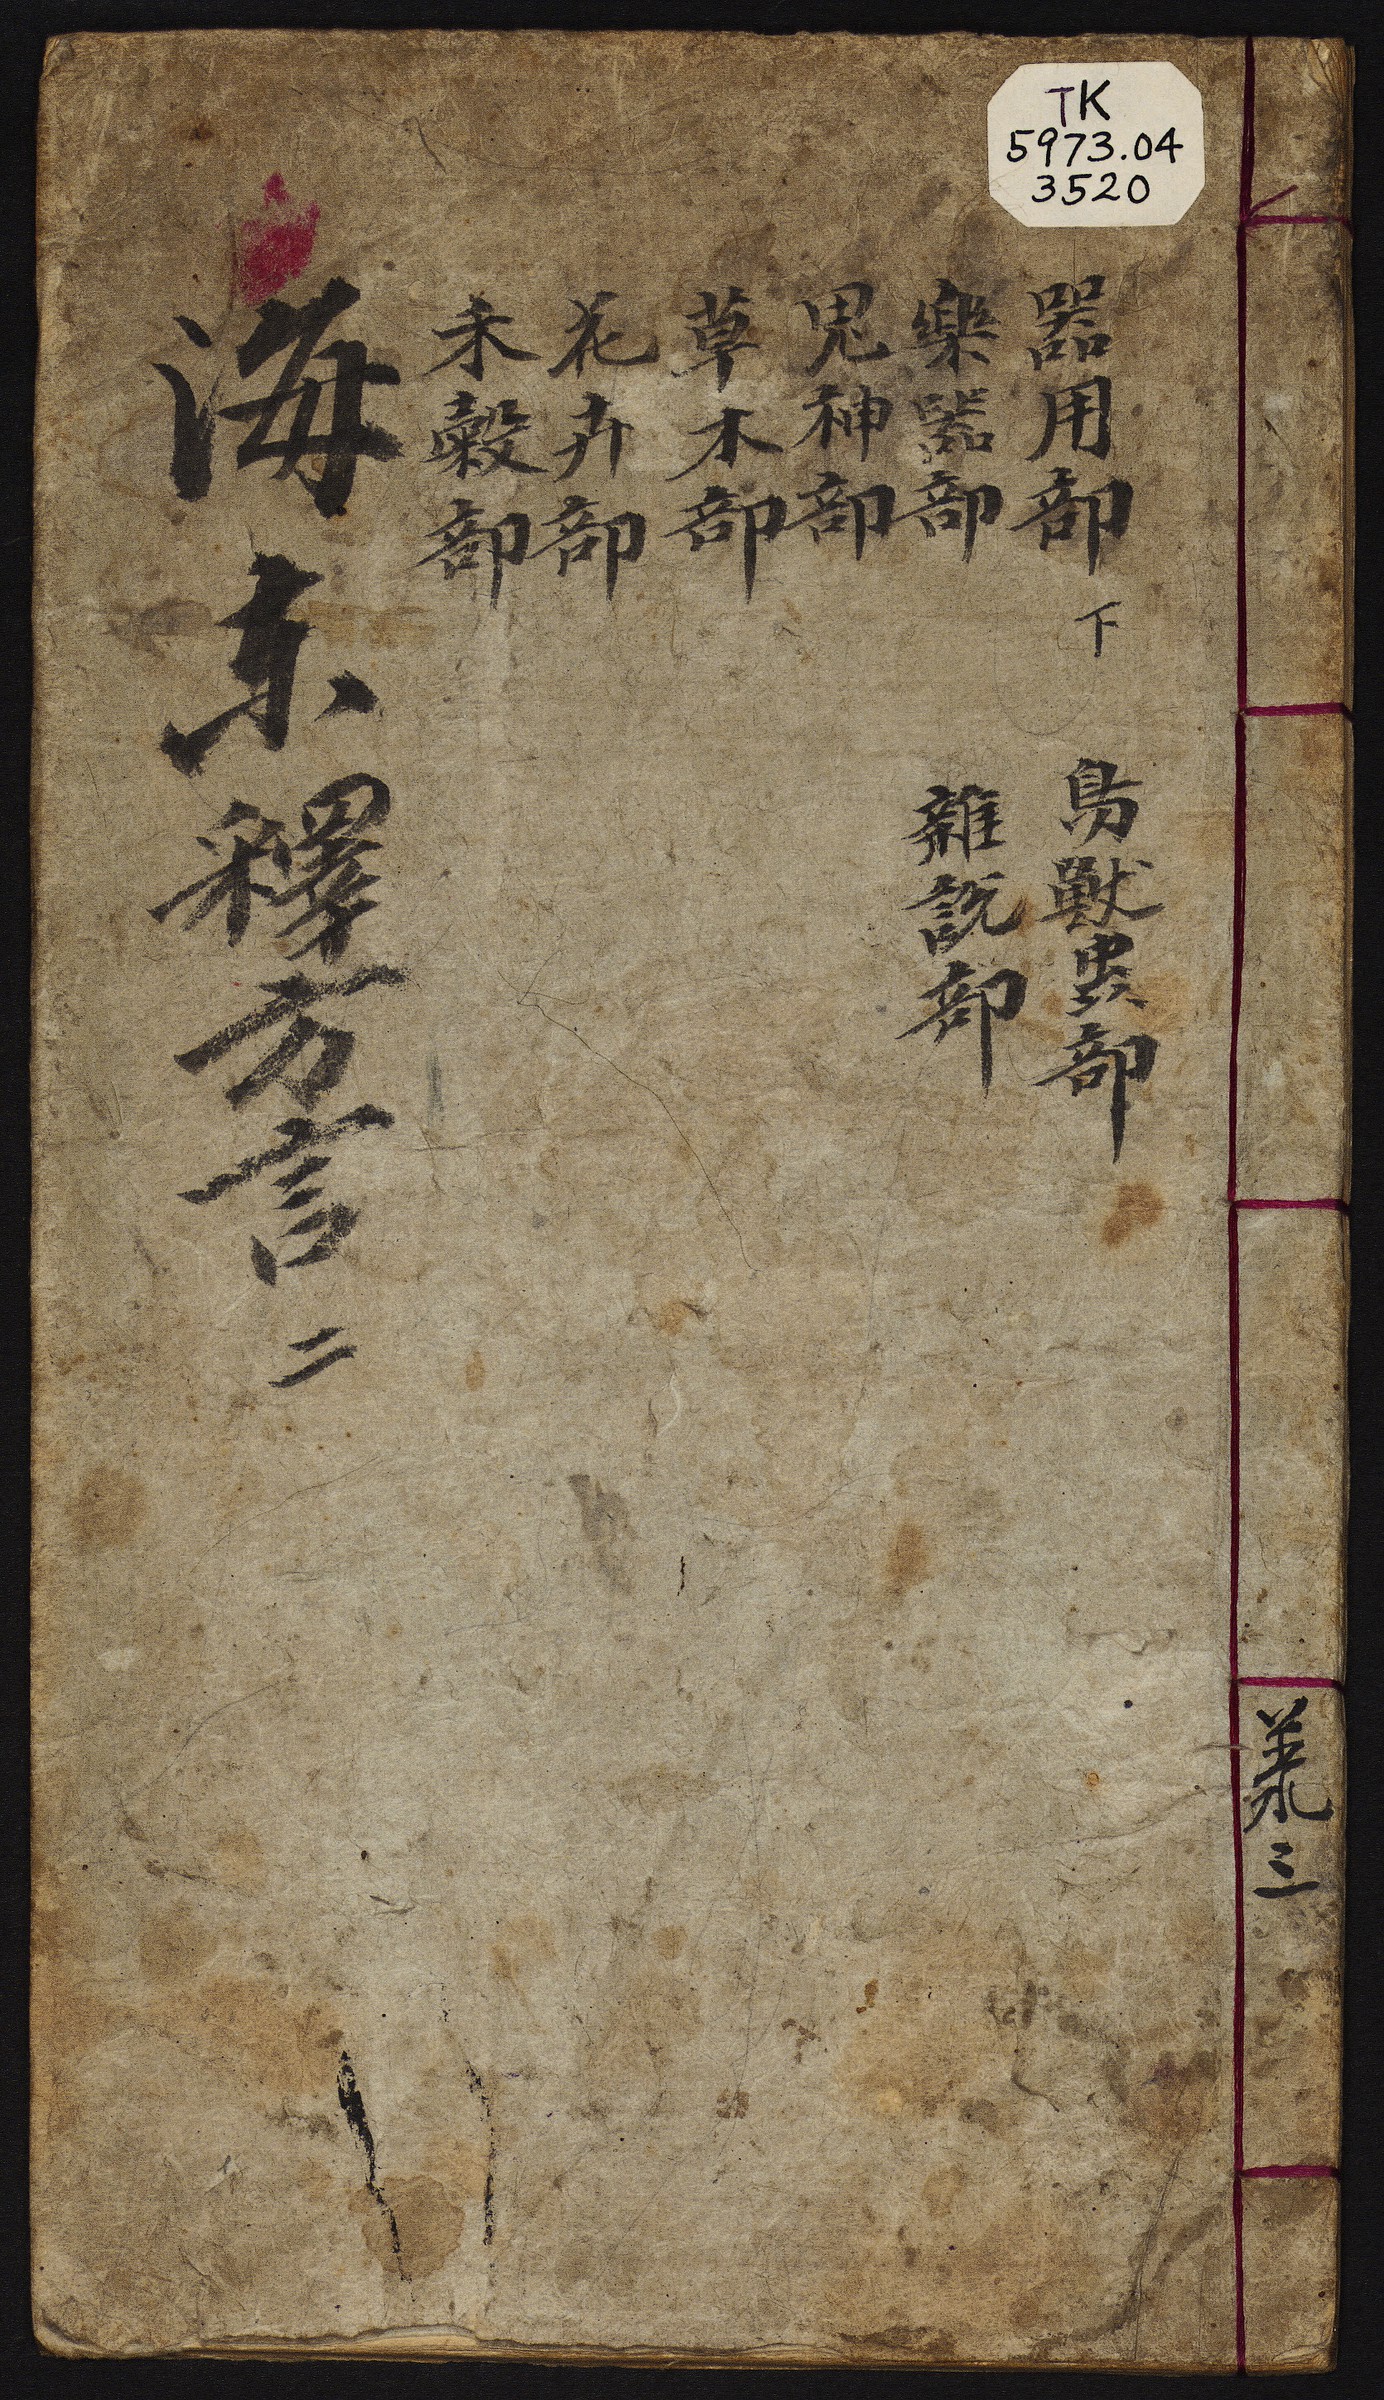 TK
5973.04
3520
器用部 下
樂器部
鬼神部
草木部
花卉部
禾穀部
鳥獸虫部
雜説部
海東釋方言 二
三